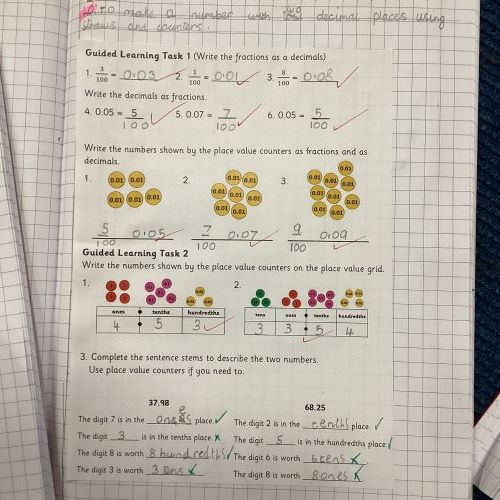 LO To make a number with two decimal places using
straws and counters.
Guided Learning Task 1 (Write the fractions as a decimals)
1. 3/100 = 0.03 2. 1/100 = 0.01 3. 8/100 = 0.08
Write the decimals as fractions.
4. 0.05 = 5/100 5. 0.07 = 7/100 6. 0.05 = 5/100
Write the numbers shown by the place value counters as fractions and as
decimals.
1. 2. 3.
0.01 0.01 0.01 0.01 0.01
0.01 0.01 0.01 0.01 0.01 0.01 0.01
0.01 0.01 0.01 0.01 0.01 0.01 0.01 0.01 0.01
5/100 0.05 7/100 0.07 9/100 0.09
Guided Learning Task 2
Write the numbers shown by the place value counters on the place value grid.
1. 2.
ones tenths hundredths tens ones tenths hundredths
4 5 3 3 3 5 4
3. Complete the sentence stems to describe the two numbers.
Use place value counters if you need to.
37.98 68.25
The digit 7 is in the ones place. The digit 2 is in the tenths place.
The digit 3 is in the tenths place. The digit 5 is in the hundredths place.
The digit 8 is worth 8 hundredths The digit 6 is worth 6 tens
The digit 3 is worth 3 tens The digit 8 is worth 8 ones